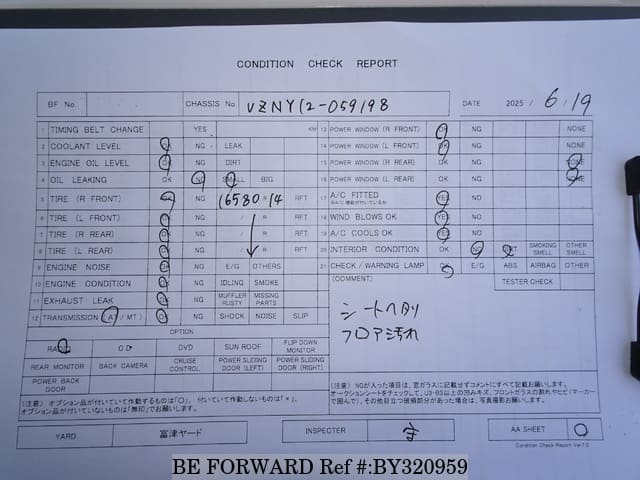 CONDITION CHECK REPORT
BF No. CHASSIS No. VZNY12-059198 DATE 2025/6/19
1 TIMING BELT CHANGE YES KM
2 COOLANT LEVEL OK NG LEAK
3 ENGINE OIL LEVEL OK NG DIRT
4 OIL LEAKING OK NG SMALL BIG
5 TIRE (R FRONT) OK NG 165R80 R 14 RFT
6 TIRE (L FRONT) OK NG / R RFT
7 TIRE (R REAR) OK NG / R RFT
8 TIRE (L REAR) OK NG / R RFT
9 ENGINE NOISE OK NG E/G OTHERS
10 ENGINE CONDITION OK NG IDLING SMOKE
11 EXHAUST LEAK OK NG MUFFLER RUSTY MISSING PARTS
12 TRANSMISSION (AT / MT) OK NG SHOCK NOISE SLIP
13 POWER WINDOW (R FRONT) OK NG NONE
14 POWER WINDOW (L FRONT) OK NG NONE
15 POWER WINDOW (R REAR) OK NG NONE
16 POWER WINDOW (L REAR) OK NG NONE
17 A/C FITTED YES NO
18 WIND BLOWS OK YES NO
19 A/C COOLS OK YES NO
20 INTERIOR CONDITION OK NG DIRT SMOKING SMELL OTHER SMELL
21 CHECK / WARNING LAMP OK E/G ABS AIRBAG OTHER
(COMMENT) TESTER CHECK
シートヘタリ
フロア汚れ
OPTION
RADIO CD DVD SUN ROOF FLIP DOWN MONITOR
REAR MONITOR BACK CAMERA CRUISE CONTROL POWER SLIDING DOOR (LEFT) POWER SLIDING DOOR (RIGHT)
POWER BACK DOOR
(注意) オプション品が付いていて作動するものは「○」、付いていて作動しないものは「×」、
オプション品が付いていないものは「無印」でお願いします。
(注意) NGが入った項目は、窓ガラスに記載せずコメントにすべて記載お願いします。
オークションシートをチェックして、U3・B3以上の凹みキズ、フロントガラスの割れやヒビ(マーカー
で囲んで)、その他目立つ破損部分があった場合は、写真撮影お願いします。
YARD 富津ヤード INSPECTER 守 AA SHEET ○
Condition Check Report Ver1.0
BE FORWARD Ref #:BY320959